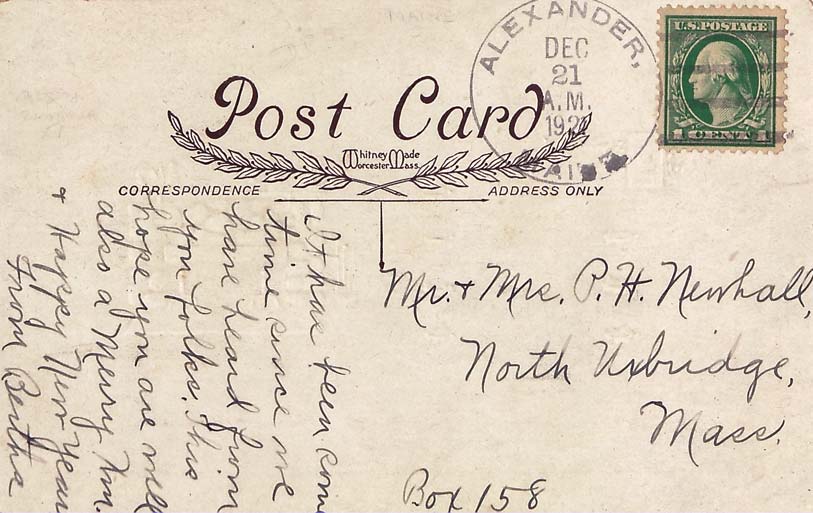 ALEXANDER,
DEC
21
A.M.
U.S. POSTAGE
1 CENT 1
Post Card
Whitney Made
Worcester Mass.
CORRESPONDENCE
ADDRESS ONLY
It has been some
time since we
have heard from
you folks. This
hope you are well
also a Merry Xm.
+ Happy New Year
From Bertha
Mr. + Mrs. P. H. Newhall,
North Uxbridge,
Mass.
Box 158